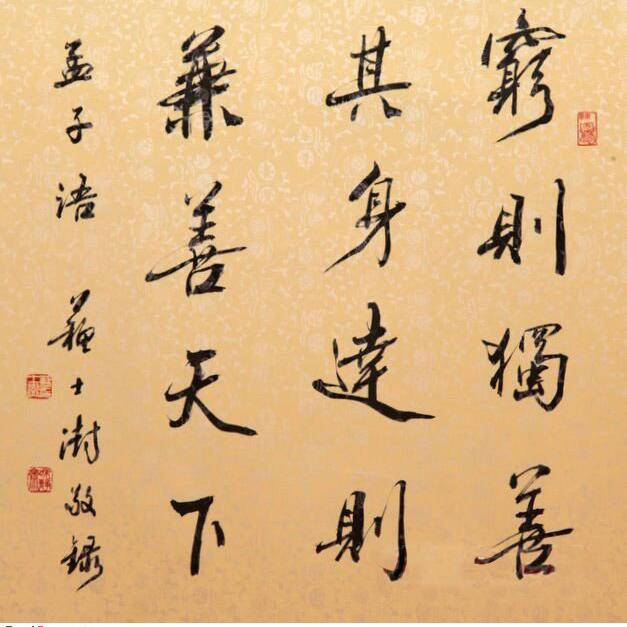 窮則獨善
其身達則
兼善天下
孟子語 蘇士澍敬錄